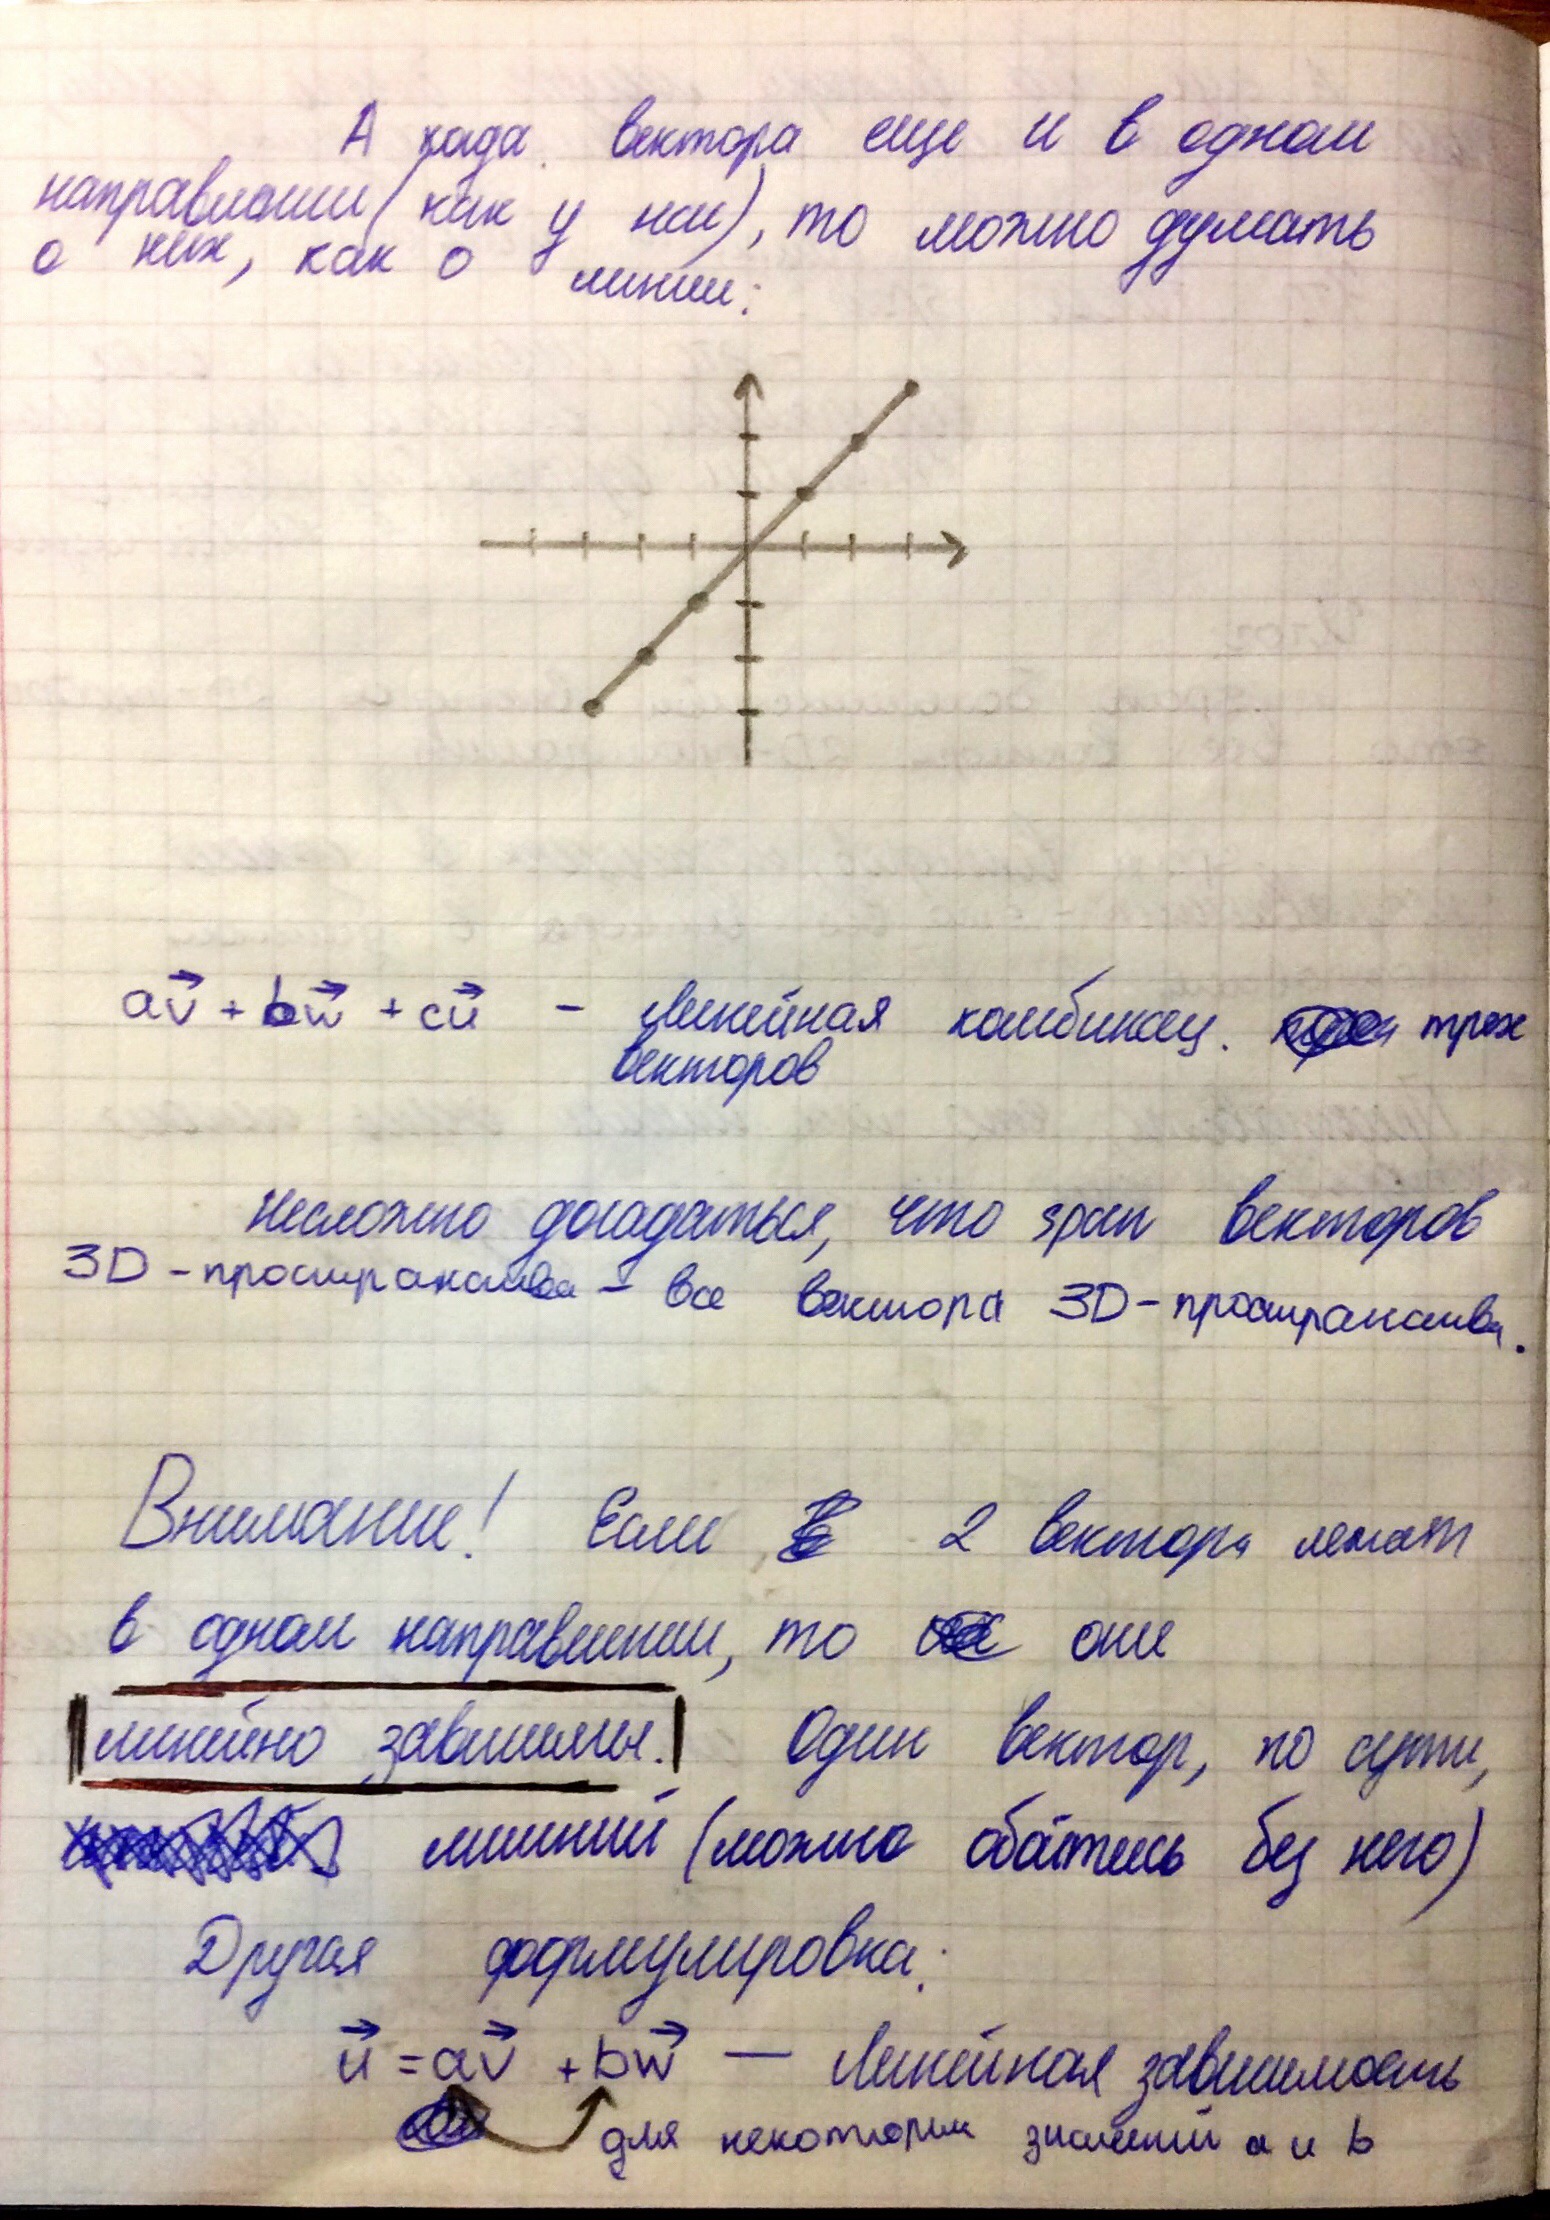 А когда вектора еще и в одном
направлении (как у нас), то можно думать
о них, как о линии:
a\vec{v} + b\vec{w} + c\vec{u} - линейная комбинац. трех
векторов
Несложно догадаться, что span векторов
3D-пространства - все вектора 3D-пространства.
Внимание! Если 2 вектора лежат
в одном направлении, то они
линейно зависимы. Один вектор, по сути,
лишний (можно обойтись без него)
Другая формулировка:
\vec{u} = a\vec{v} + b\vec{w} — линейная зависимость
для некоторых значений a и b